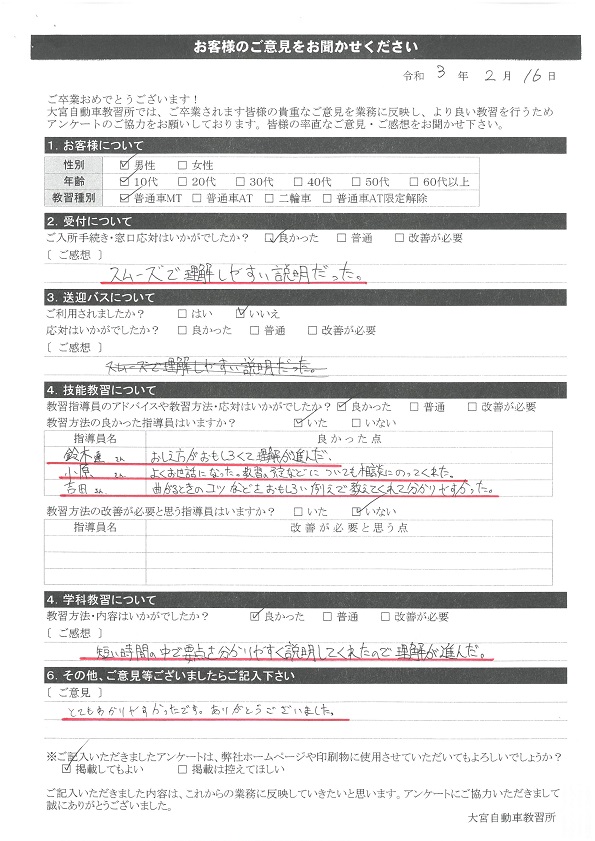 お客様のご意見をお聞かせください
令和 3 年 2 月 16 日
ご卒業おめでとうございます！
大宮自動車教習所では、ご卒業されます皆様の貴重なご意見を業務に反映し、より良い教習を行うため
アンケートのご協力をお願いしております。皆様の率直なご意見・ご感想をお聞かせ下さい。
1. お客様について
性別 ☑ 男性 □ 女性
年齢 ☑ 10代 □ 20代 □ 30代 □ 40代 □ 50代 □ 60代以上
教習種別 ☑ 普通車MT □ 普通車AT □ 二輪車 □ 普通車AT限定解除
2. 受付について
ご入所手続き・窓口応対はいかがでしたか？ ☑ 良かった □ 普通 □ 改善が必要
〔 ご感想 〕
スムーズで理解しやすい説明だった。
3. 送迎バスについて
ご利用されましたか？ □ はい ☑ いいえ
応対はいかがでしたか？ □ 良かった □ 普通 □ 改善が必要
〔 ご感想 〕
スムーズで理解しやすい説明だった。
4. 技能教習について
教習指導員のアドバイスや教習方法・応対はいかがでしたか？ ☑ 良かった □ 普通 □ 改善が必要
教習方法の良かった指導員はいますか？ ☑ いた □ いない
指導員名 良かった点
鈴木 さん おしえ方がおもしろくて理解が進んだ。
小原 さん よくお世話になった。教習、予定などについても相談にのってくれた。
吉田 さん 曲がるときのコツなどをおもしろい例えで教えてくれて分かりやすかった。
教習方法の改善が必要と思う指導員はいますか？ □ いた ☑ いない
指導員名 改善が必要と思う点
4. 学科教習について
教習方法・内容はいかがでしたか？ ☑ 良かった □ 普通 □ 改善が必要
〔 ご感想 〕
短い時間の中で要点を分かりやすく説明してくれたので理解が進んだ。
6. その他、ご意見等ございましたらご記入下さい
〔 ご意見 〕
とてもわかりやすかったです。ありがとうございました。
※ご記入いただきましたアンケートは、弊社ホームページや印刷物に使用させていただいてもよろしいでしょうか？
☑ 掲載してもよい □ 掲載は控えてほしい
ご記入いただきました内容は、これからの業務に反映していきたいと思います。アンケートにご協力いただきまして
誠にありがとうございました。
大宮自動車教習所